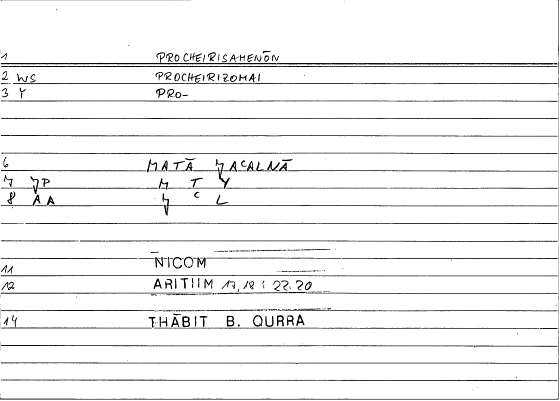 1 PROCHEIRISAMENŌN
2 WS PROCHEIRIZOMAI
3 Y PRO-
6 MATĀ ɈACALNĀ
7 ɈP M T Y
8 AA Ɉ C L
11 NICOM
12 ARITIIM 17,18 : 22.20
14 THĀBIT B. QURRA